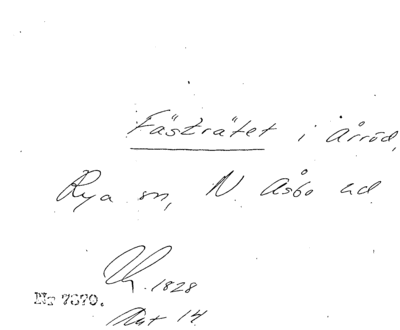 Fästrätet i Årröd,
Rya sn, N. Åsbo hd.
1828
Nr 7670.
14